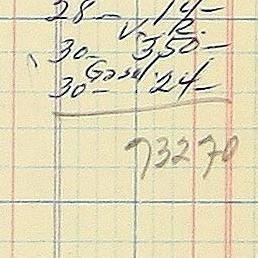 28- 14-
V. R.
30- 350-
Gasol.
30- 24-
73270